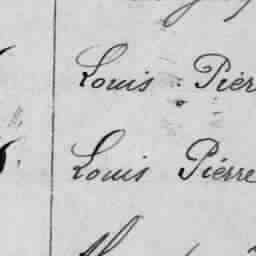 Louis Piér
Louis Piérre